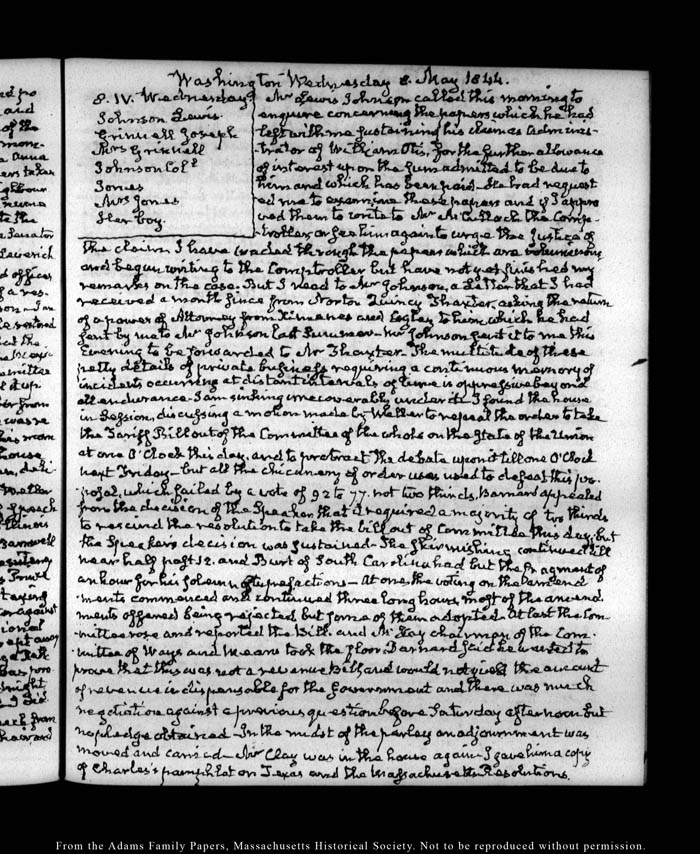 Washington Wednesday 8. May 1844.
8. IV. Wednesday
Johnson Lewis
Grinnell Joseph
Mrs Grinnell
Johnson Col.l
Jones
Mrs Jones
Her boy.
Mr Lewis Johnson called this morning to
enquire concerning the papers which he had
left with me sustaining his claim as Adminis-
trator of William Otis, for the further allowance
of interest upon the sum admitted to be due to
him and which has been paid. He had request
ed me to examine these papers and if I appro
ved them to write to Mr McCulloch the Comp-
troller or see him again to urge the justice of
the claim. I have waded through the papers which are voluminous,
and begun writing to the Comptroller but have not yet finished my
remarks on the case. But I read to Mr Johnson, a Letter that I had
received a month since from Norton Quincy Thaxter, asking the return
of a power of Attorney from Ximenes and to him, which he had
sent by me to Mr Johnson last Summer. Mr Johnson sent it to me this
Evening to be forwarded to Mr Thaxter. The multitude of these
petty details of private business requiring a continuous memory of
incidents occurring at distant intervals of time is oppressive beyond
all endurance. I am sinking irrecoverably under it. I found the house
in Session, discussing a motion made by Weller to repeal the order to take
the Tariff Bill out of the Committee of the whole on the State of the Union
at one O'Clock this day, and to protract the debate upon it till one O'Clock
next Friday - but all the chicanery of order was used to defeat this pro-
posal, which failed by a vote of 92 to 77. not two thirds, Barnard appealed
from the decision of the Speaker that it required a majority of two thirds
to rescind the resolution to take the bill out of Committee this day, but
the Speaker's decision was sustained. The skirmishing continued till
near half past 12. and Burt of South Carolina had but the fragment of
an hour for his solemn stupefactions - At one, the voting on the amend-
-ments commenced and continued three long hours, most of the amend-
ments offered being rejected but some of them adopted. At last the Com-
mittee rose and reported the Bill. and McKay chairman of the Com-
-mittee of Ways and Means took the floor. Barnard said he wanted to
prove that this was not a revenue Bill and would not yield the amount
of revenue indispensable for the Government and there was much
negotiation against a previous question before Saturday afternoon but
no pledge obtained - In the midst of the parley an adjournment was
moved and carried - Mr Clay was in the house again - I gave him a copy
of Charles's pamphlet on Texas and the Massachusetts Resolutions.
From the Adams Family Papers, Massachusetts Historical Society. Not to be reproduced without permission.